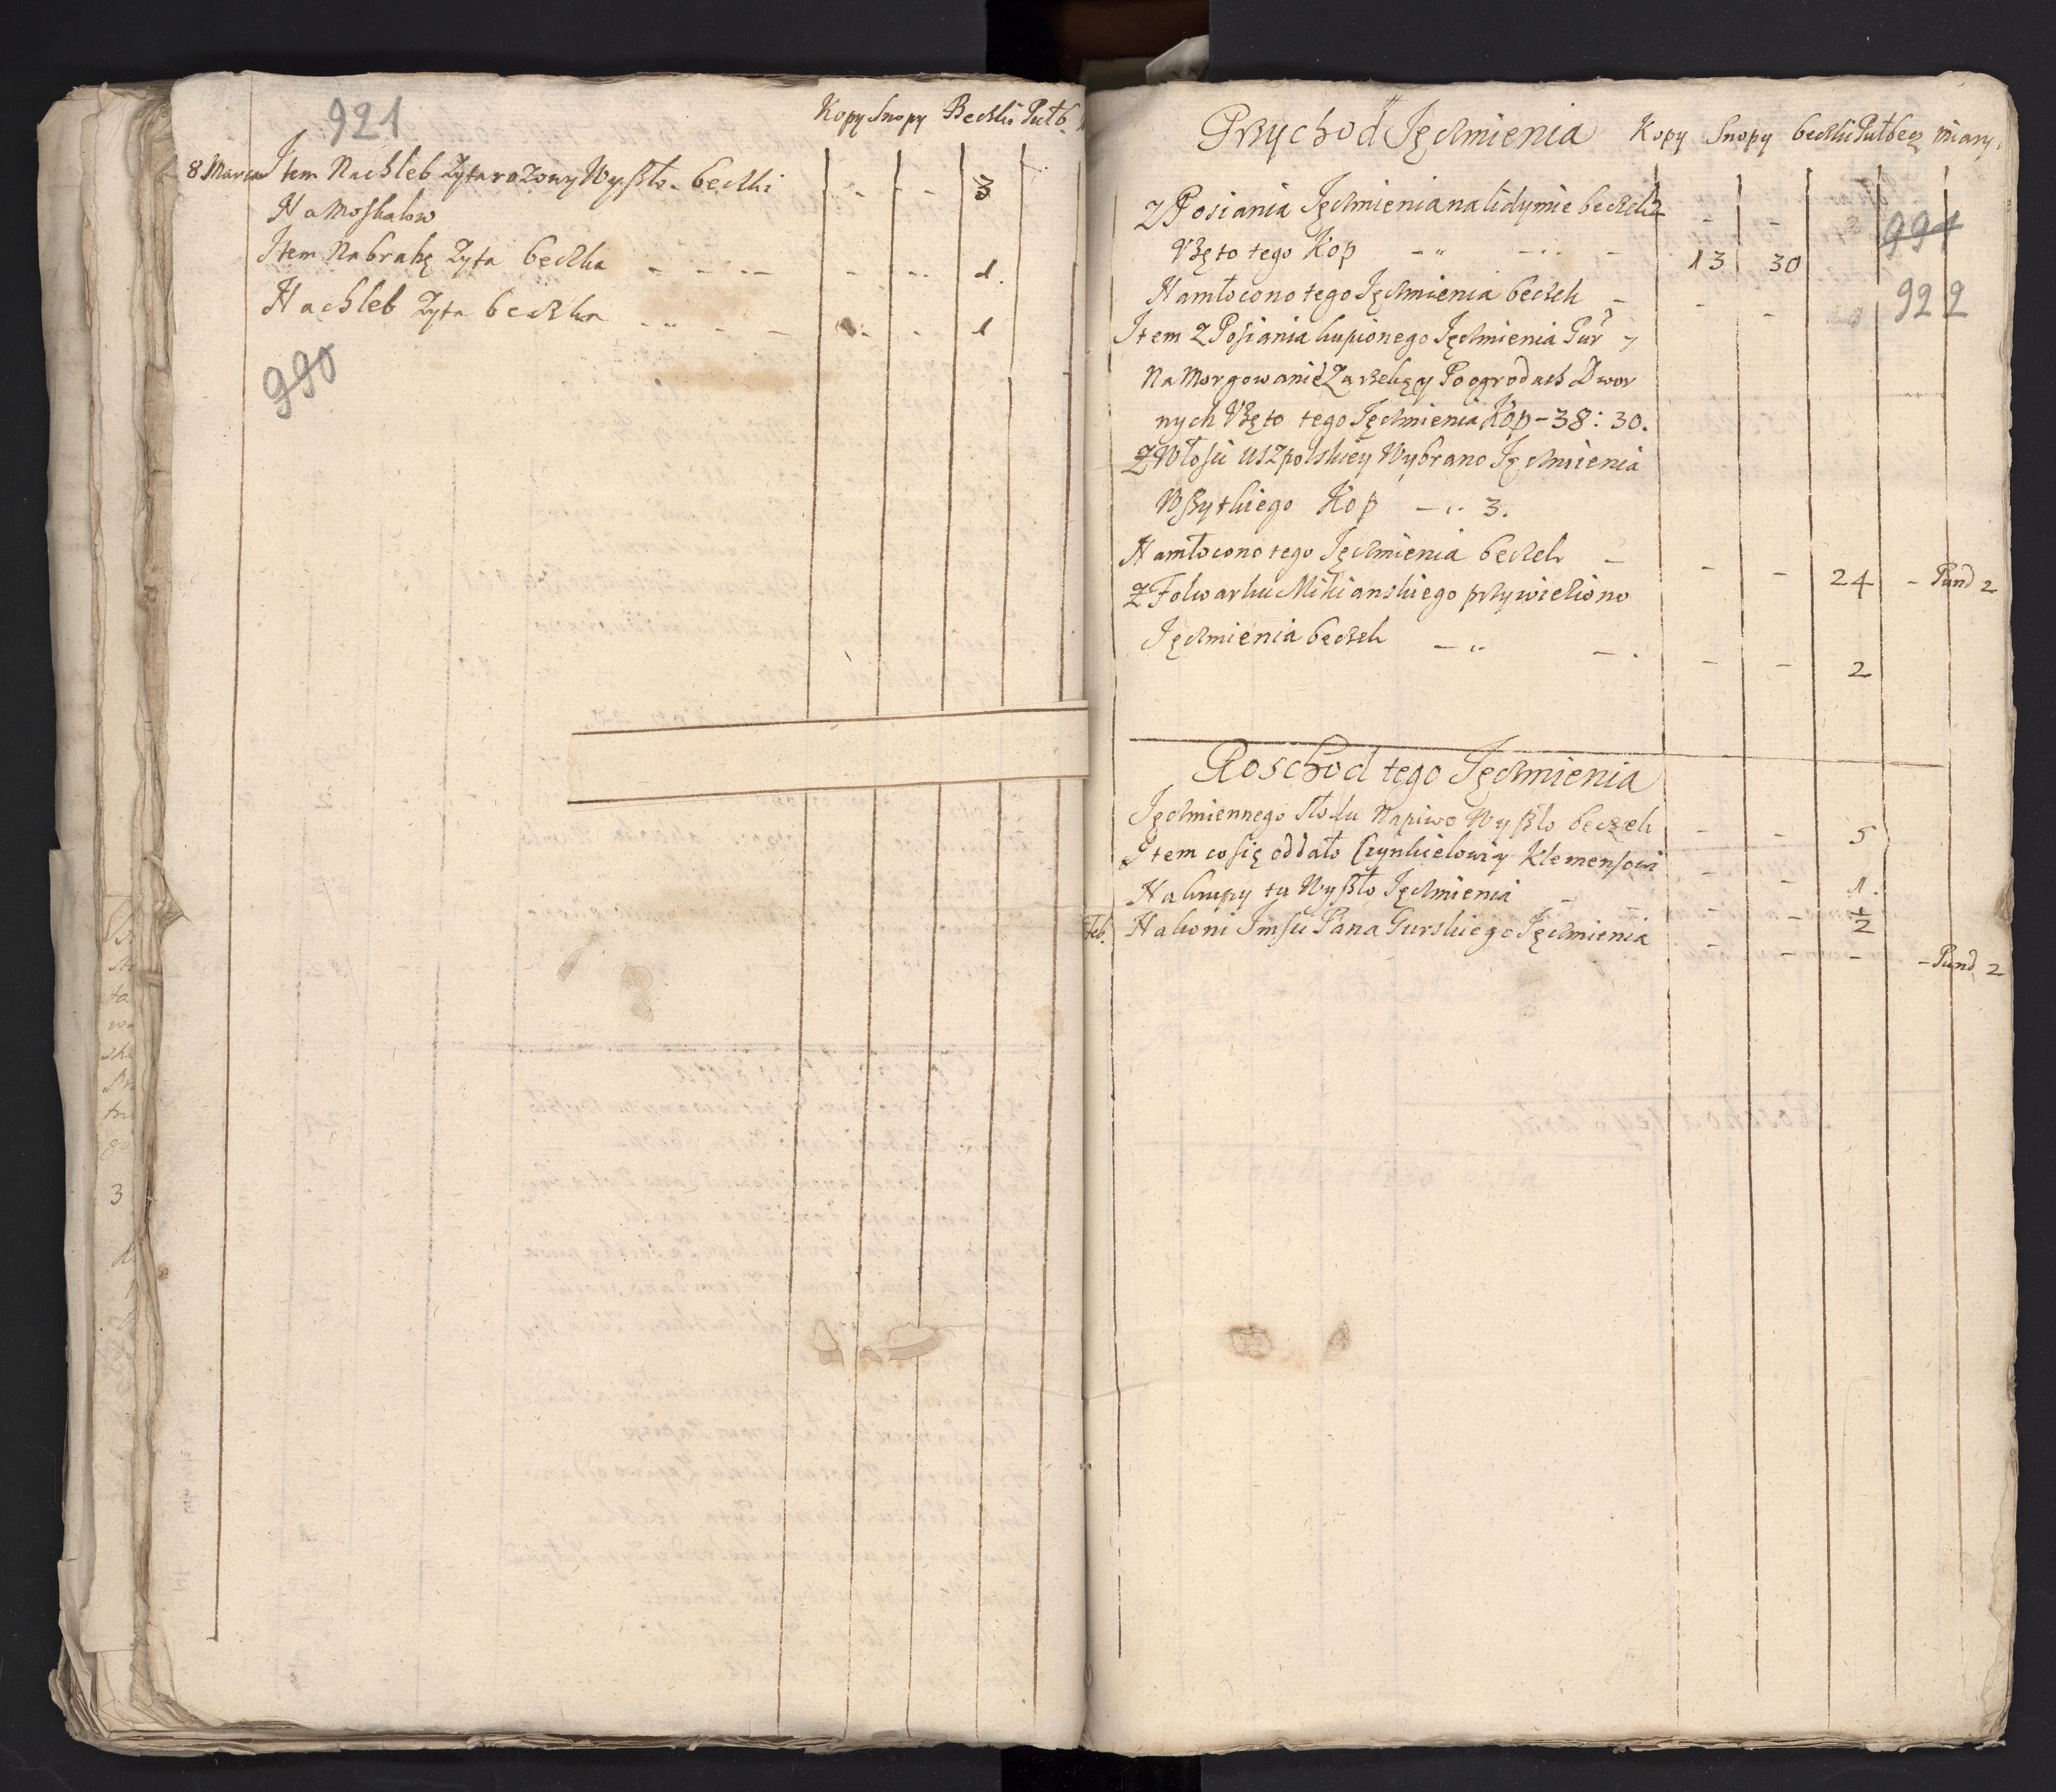 921
Kopy Snopy Beczki Pułb.
8 Marca Item Na chleb Zyta razowy Wyszło beczki - - - - 3
Na Moskalow
Item Na brahę Zyta beczka - - - - - - - 1.
Na chleb Zyta beczka - - - - - - 1
990
Przychod Jęczmienia Kopy Snopy beczki Pułbecz miary.
Z Posiania Jęczmienia na lidymie beczek 2 - -
991
Vżęto tego Kop - - - 13 30
922
Namłocono tego Jęczmienia beczek - - -
Item Z Posiania kupionego Jęczmienia Pur 7
Na Morgowanie Zarzeką y Po ogrodach Dwor
nych Vżęto tego Jęczmienia Kop - 38: 30.
Z Włosci Uszpolskiey Wybrano Jęczmienia
Wszytkiego Kop - 3.
Namłocono tego Jęczmienia beczek - - - 24 - Pund 2
Z Folwarku Mikianskiego przywieziono
Jęczmienia beczek - - - - 2
Roschod tego Jęczmienia
Jęczmiennego słodu Na piwo Wyszło beczek - - 5
Item co się oddało Klemensowi - - 1.
Na krupy tu Wyszło Jęczmienia - - - - 1/2
Feb. Na koni Jmsci Pana Gurskiego Jęczmienia - - - - Pund 2